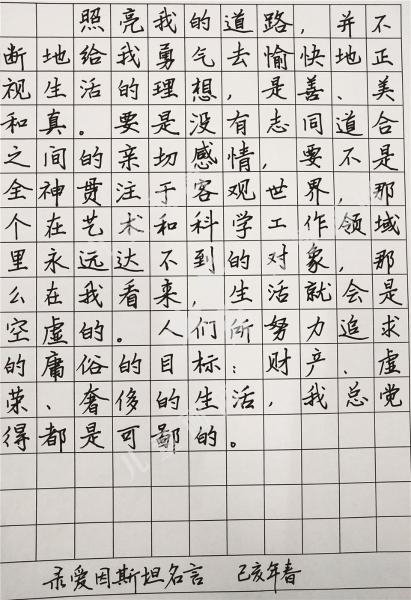 照亮我的道路，并不
断地给我勇气去愉快地正
视生活的理想，是善、美
和真。要是没有志同道合
之间的亲切感情，要不是
全神贯注于客观世界，那
个在艺术和科学工作领域
里永远达不到的对象，那
么在我看来，生活就会是
空虚的。人们所努力追求
的庸俗的目标：财产、虚
荣、奢侈的生活，我总觉
得都是可鄙的。
录爱因斯坦名言 己亥年春